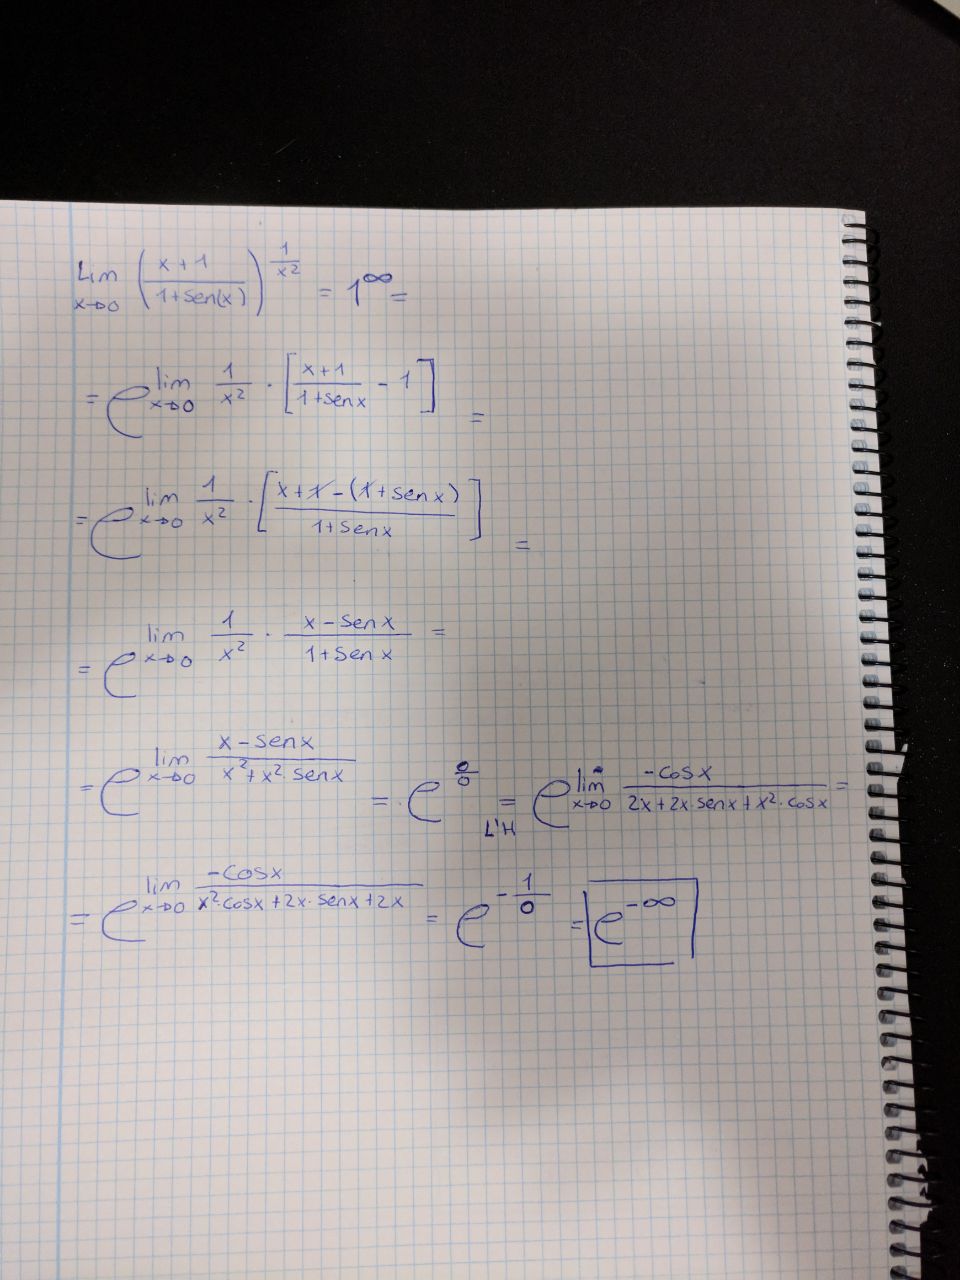 Lim x→0 ( (x+1) / (1+sen(x)) )^(1/x²) = 1^∞ =
= e^( lim x→0 1/x² · [ (x+1)/(1+senx) - 1 ] ) =
= e^( lim x→0 1/x² · [ (x+1-(1+senx)) / (1+senx) ] ) =
= e^( lim x→0 1/x² · (x-senx)/(1+senx) ) =
= e^( lim x→0 (x-senx)/(x²+x²·senx) ) = · e^(0/0) =_(L'H) e^( lim x→0 (-cosx)/(2x+2x·senx+x²·cosx) ) =
= e^( lim x→0 (-cosx)/(x²·cosx+2x·senx+2x) ) = e^(-1/0) = e^(-∞)